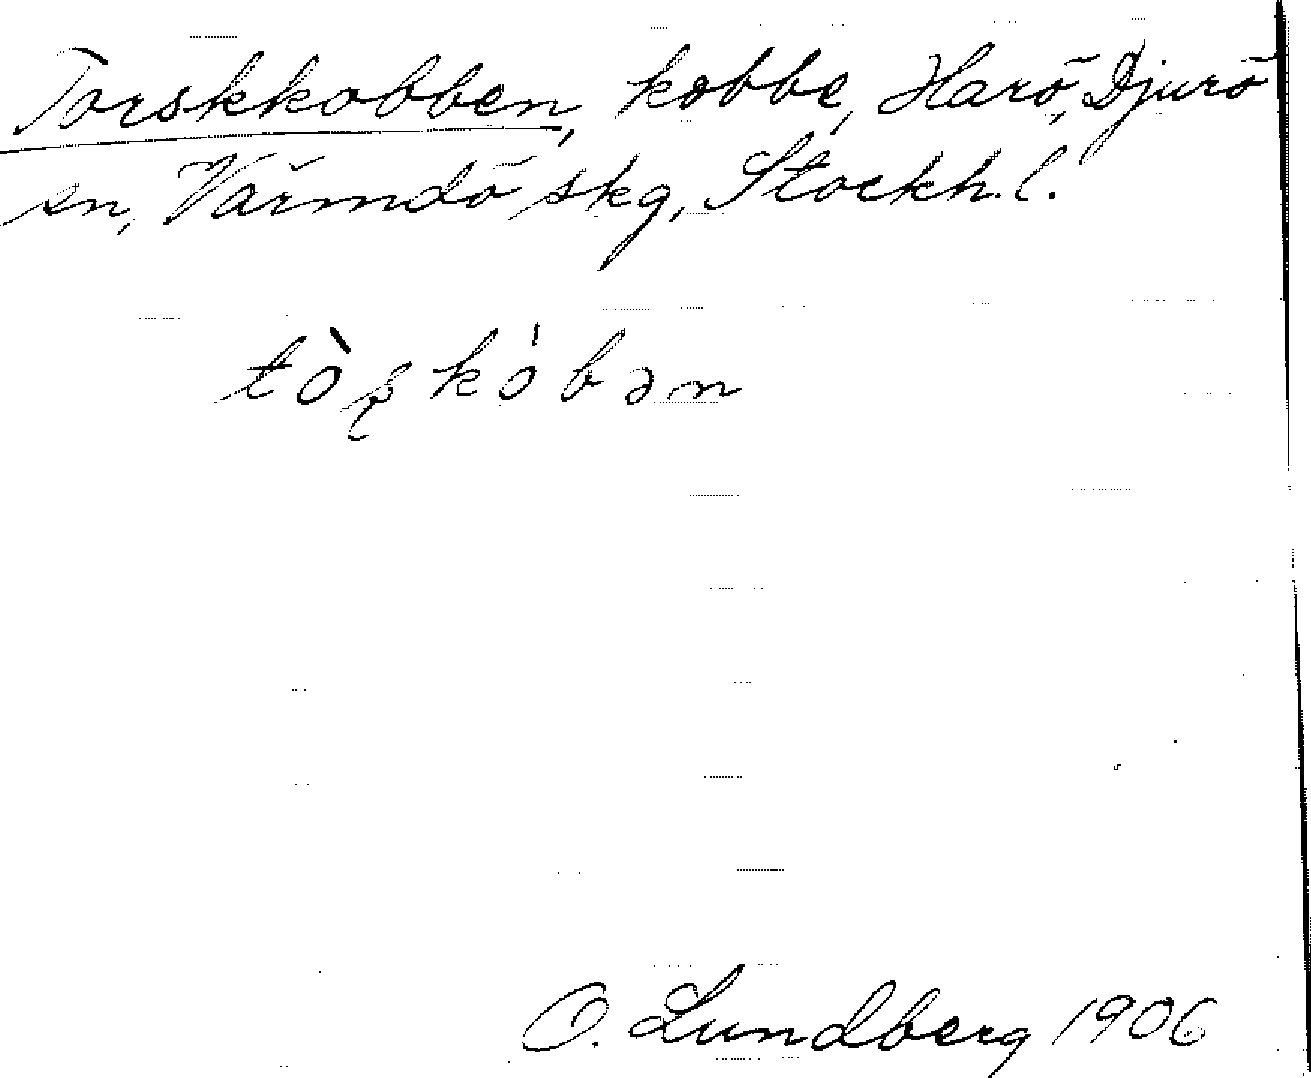 Torskkobben, kobbe, Harö, Djurö
sn, Värmdö skg, Stockh. l.
tòʂkóbən
O. Lundberg 1906